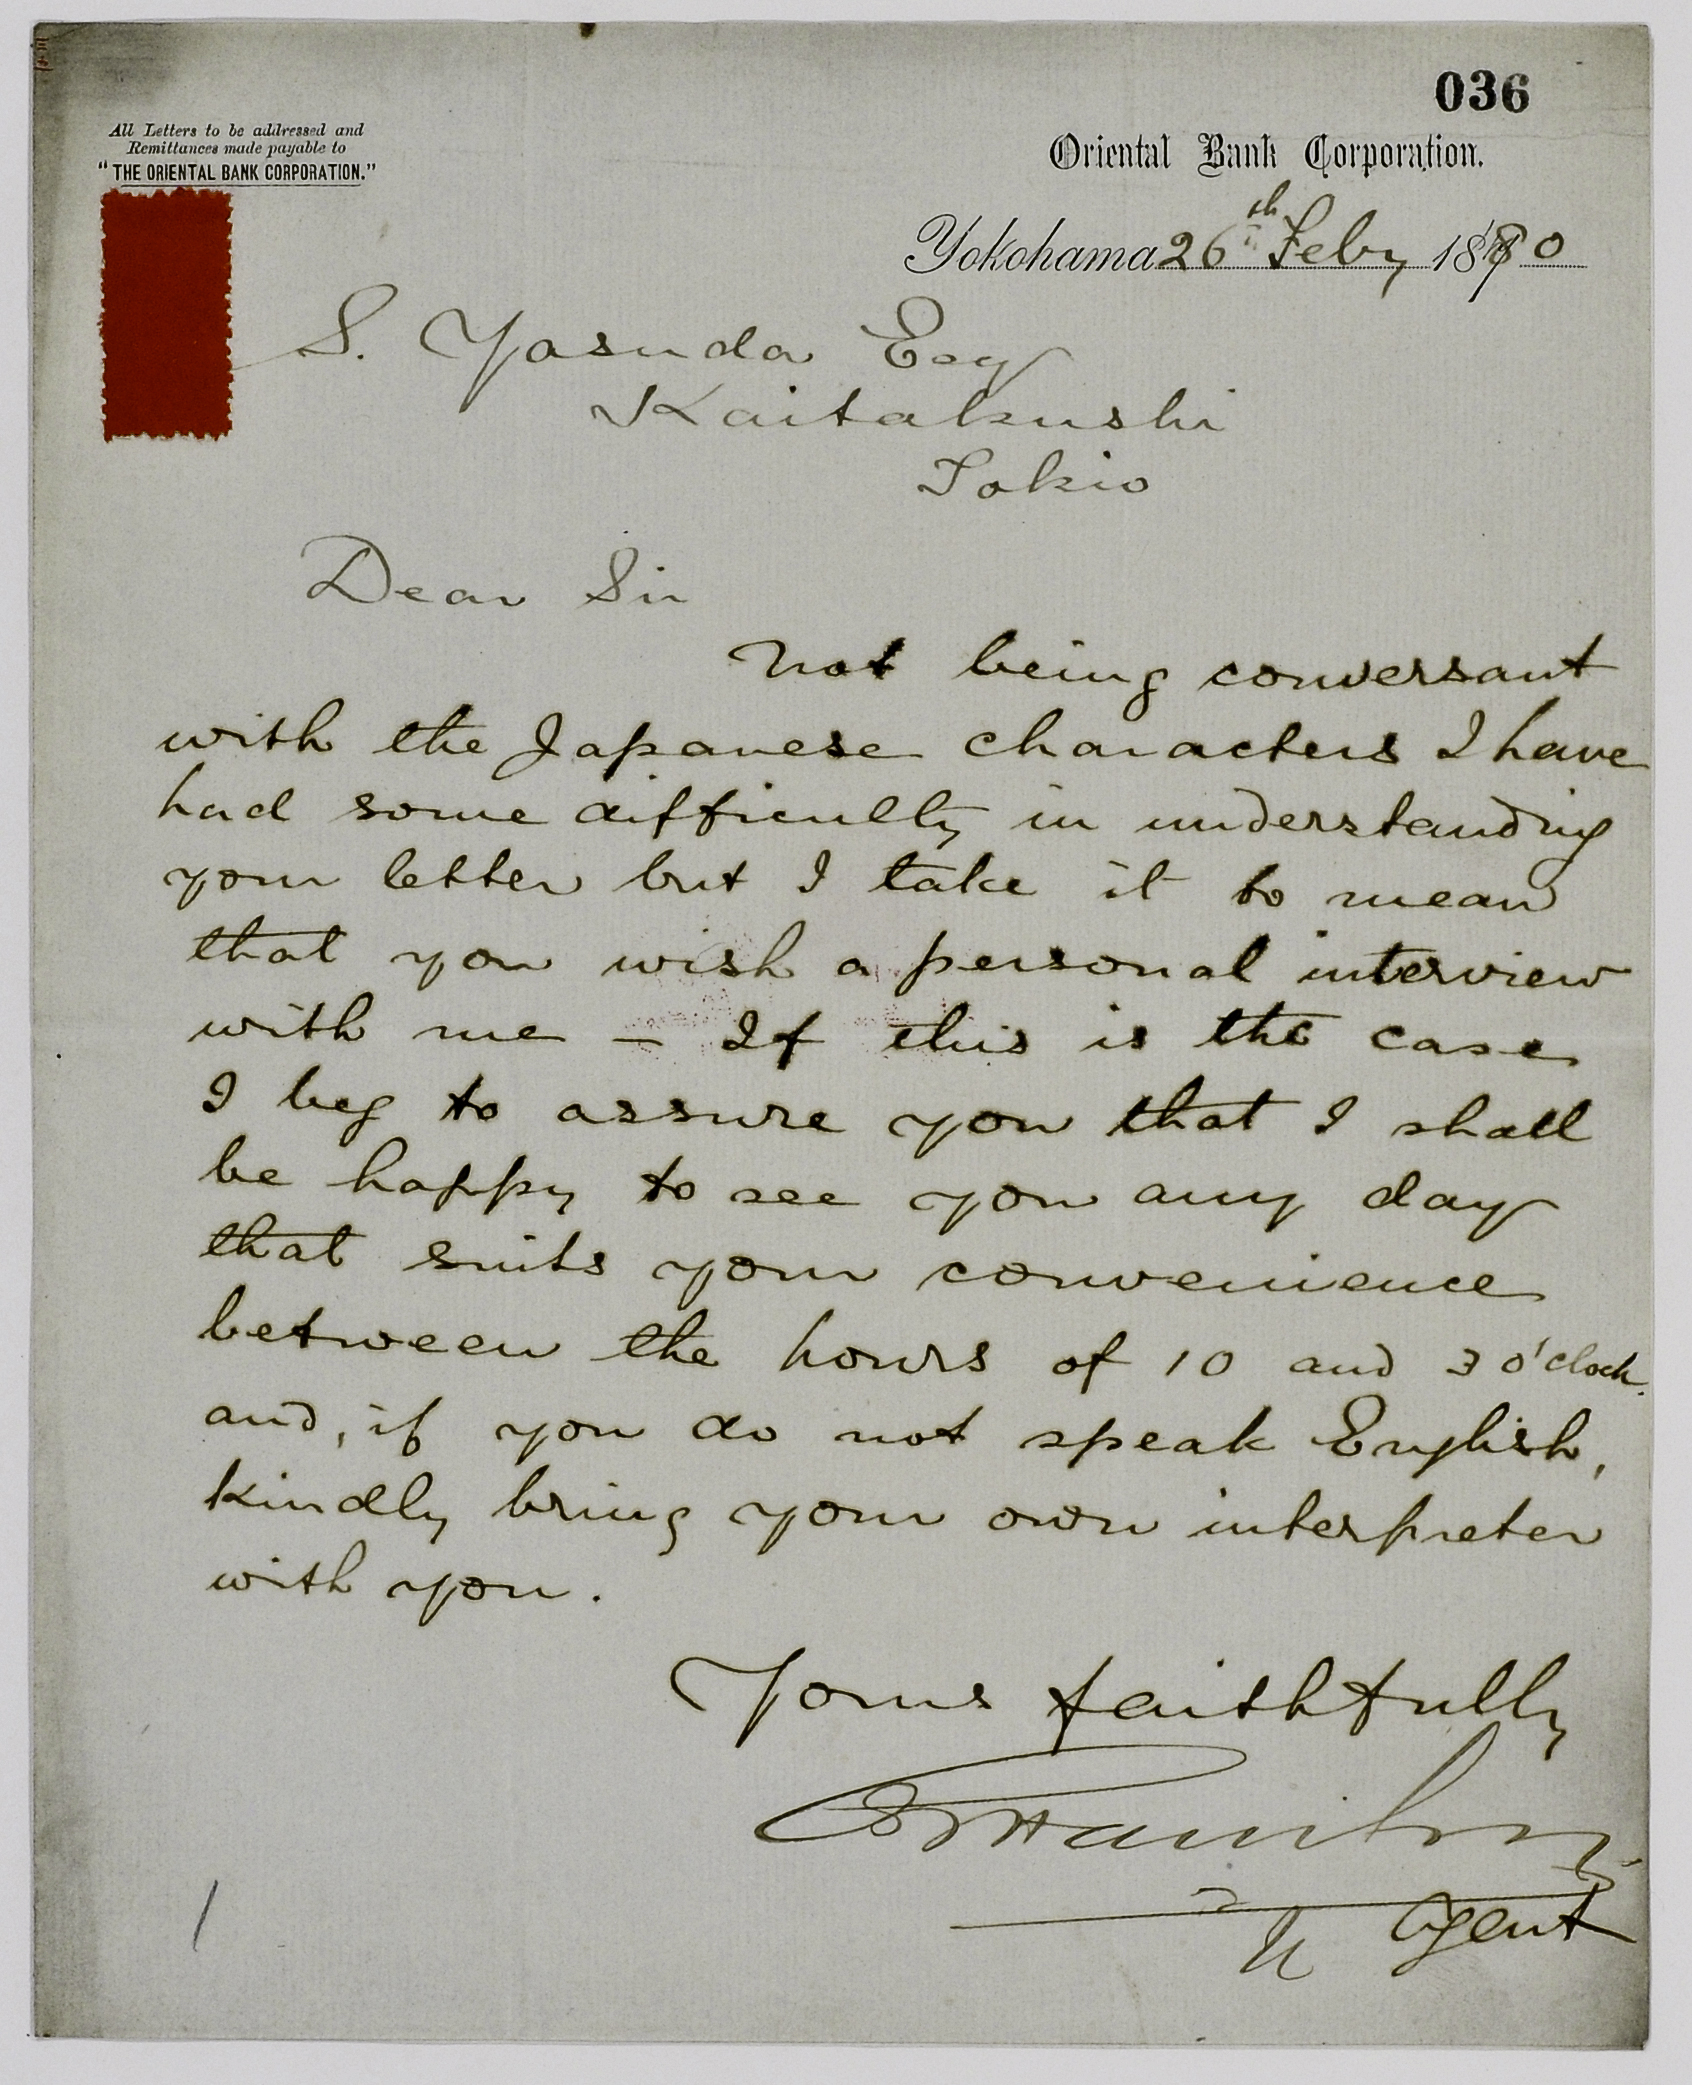 036
All Letters to be addressed and
Remittances made payable to
"THE ORIENTAL BANK CORPORATION."
Oriental Bank Corporation.
Yokohama 26th Feby 1880
S. Yasuda Esq
Kaitakushi
Tokio
Dear Sir
Not being conversant
with the Japanese characters I have
had some difficulty in understanding
your letter but I take it to mean
that you wish a personal interview
with me – If this is the case
I beg to assure you that I shall
be happy to see you any day
that suits your convenience
between the hours of 10 and 3 o'clock.
and, if you do not speak English,
kindly bring your own interpreter
with you.
Yours faithfully
Agent